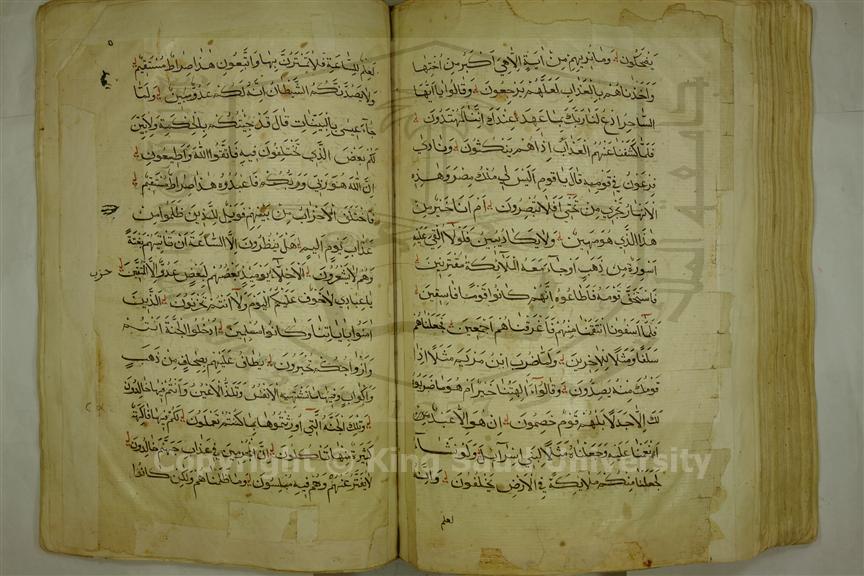 يضحكون وما نريهم من اية الا هي اكبر من اختها
واخذناهم بالعذاب لعلهم يرجعون وقالوا يا ايها
الساحر ادع لنا ربك بما عهد عندك اننا لمهتدون
فلما كشفنا عنهم العذاب اذا هم ينكثون ونادى
فرعون في قومه قال يا قوم اليس لي ملك مصر وهذه
الانهار تجري من تحتي افلا تبصرون ام انا خير من
هذا الذي هو مهين ولا يكاد يبين فلولا القي عليه
اسورة من ذهب او جاء معه الملائكة مقترنين
فاستخف قومه فاطاعوه انهم كانوا قوما فاسقين
فلما اسفونا انتقمنا منهم فاغرقناهم اجمعين فجعلناهم
سلفا ومثلا للاخرين ولما ضرب ابن مريم مثلا اذا
قومك منه يصدون وقالوا االهتنا خير ام هو ما ضربوه
لك الا جدلا بل هم قوم خصمون ان هو الا عبد
انعمنا عليه وجعلناه مثلا لبني اسرايل ولو نشاء
لجعلنا منكم ملايكة في الارض يخلفون وانه
لعلم
لعلم للساعة فلا تمترن بها واتبعون هذا صراط مستقيم
ولا يصدنكم الشيطان انه لكم عدو مبين ولما
جاء عيسى بالبينات قال قد جئتكم بالحكمة ولابين
لكم بعض الذي تختلفون فيه فاتقوا الله واطيعون
ان الله هو ربي وربكم فاعبدوه هذا صراط مستقيم
فاختلف الاحزاب من بينهم فويل للذين ظلموا من
عذاب يوم اليم هل ينظرون الا الساعة ان تاتيهم بغتة
وهم لا يشعرون الاخلاء يومئذ بعضهم لبعض عدو الا المتقين
حزب
يا عبادي لا خوف عليكم اليوم ولا انتم تحزنون الذين
امنوا باياتنا وكانوا مسلمين ادخلوا الجنة انتم
وازواجكم تحبرون يطاف عليهم بصحاف من ذهب
واكواب وفيها ما تشتهيه الانفس وتلذ الاعين وانتم فيها خالدون
وتلك الجنة التي اورثتموها بما كنتم تعملون لكم فيها فاكهة
كثيرة منها تاكلون ان المجرمين في عذاب جهنم خالدون
لا يفتر عنهم وهم فيه مبلسون وما ظلمناهم ولكن كانوا
Copyright © King Saud University